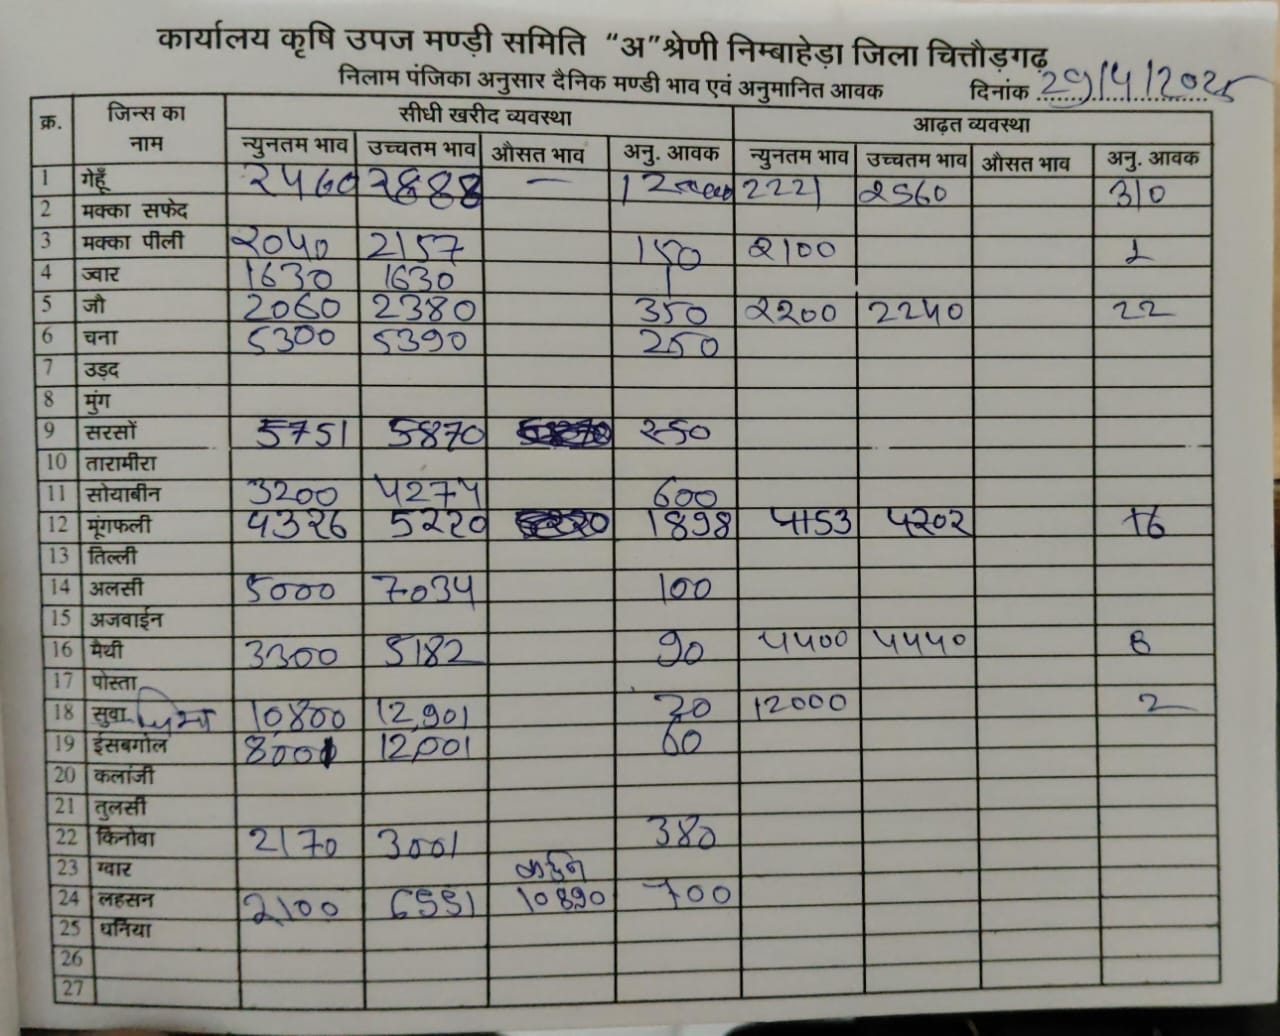 कार्यालय कृषि उपज मण्डी समिति "अ" श्रेणी निम्बाहेड़ा जिला चित्तौड़गढ़
निलाम पंजिका अनुसार दैनिक मण्डी भाव एवं अनुमानित आवक दिनांक 29/4/2025
क्र. जिन्स का नाम सीधी खरीद व्यवस्था आढ़त व्यवस्था
न्युनतम भाव उच्चतम भाव औसत भाव अनु. आवक न्युनतम भाव उच्चतम भाव औसत भाव अनु. आवक
1 गेहूँ 2460 2888 — 2221 2560 310
2 मक्का सफेद
3 मक्का पीली 2040 2157 150 2100 1
4 ज्वार 1630 1630 1
5 जौ 2060 2380 350 2200 2240 22
6 चना 5300 5390 250
7 उड़द
8 मुंग
9 सरसों 5751 5870 250
10 तारामीरा
11 सोयाबीन 3200 4274 600
12 मूंगफली 4326 5220 1898 4153 4202 16
13 तिल्ली
14 अलसी 5000 7034 100
15 अजवाईन
16 मैथी 3300 5182 90 4400 4440 6
17 पोस्ता
18 सुवा 10,800 12,901 20 12000 2
19 ईसबगोल 8001 12,001 60
20 कलांजी
21 तुलसी
22 किनोवा 2170 3001 380
23 ग्वार
24 लहसन 2100 6551 10890 700
25 धनिया
26
27